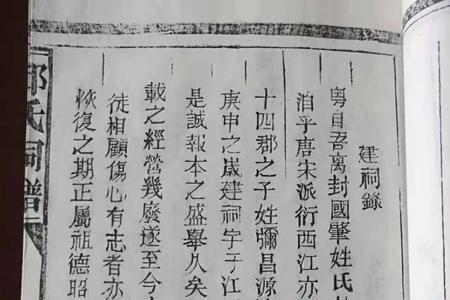 建祠錄
粤自吾离封國肇姓氏
洎乎唐宋派衍西江亦
十四郡之子姓彌昌源
庚申之歲建祠宇于江
是誠報本之盛舉久矣
載之經營幾廢遂至今
徒相顧傷心有志者亦
恢復之期正屬祖德昭
氏祠譜